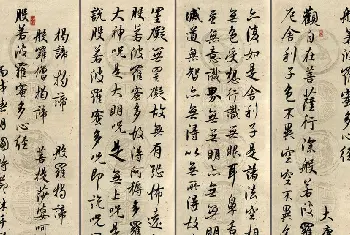 大唐
觀自在菩薩行深般若波羅
厄舍利子色不異空空不異
亦復如是舍利子是諸法空相
無色無受想行識無眼耳鼻舌
無意識界無無明亦無無明盡
滅道無智亦無得以無所得故
罣礙無罣礙故無有恐怖遠
般若波羅蜜多故得阿耨多
大神咒是大明咒是無上咒是
說般若波羅蜜多咒即說咒
揭諦揭諦 般羅揭諦
般羅僧揭諦 菩提薩婆訶
般若波羅蜜多心經